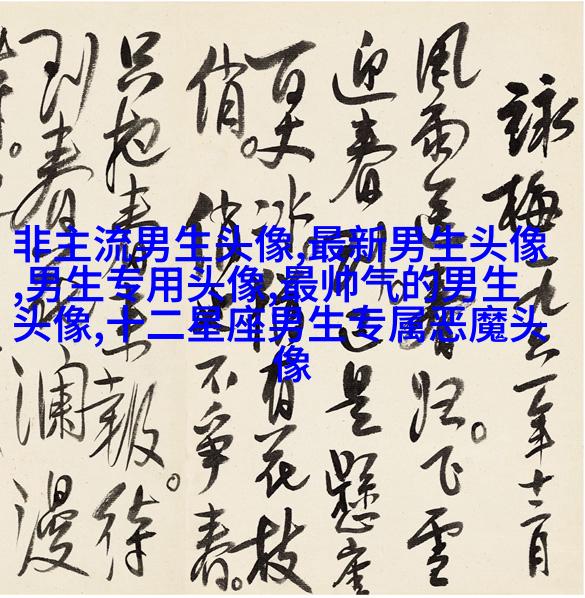 非主流男生头像,最新男生头像
,男生专用头像,最帅气的男生
头像,十二星座男生专属恶魔头
像
詠梅一九六一年十二月
風雨送春归。飞雪
迎春到已是懸崖
百丈冰犹有花枝
俏。俏也不爭春。
只把春来報。待
到春花瀾漫